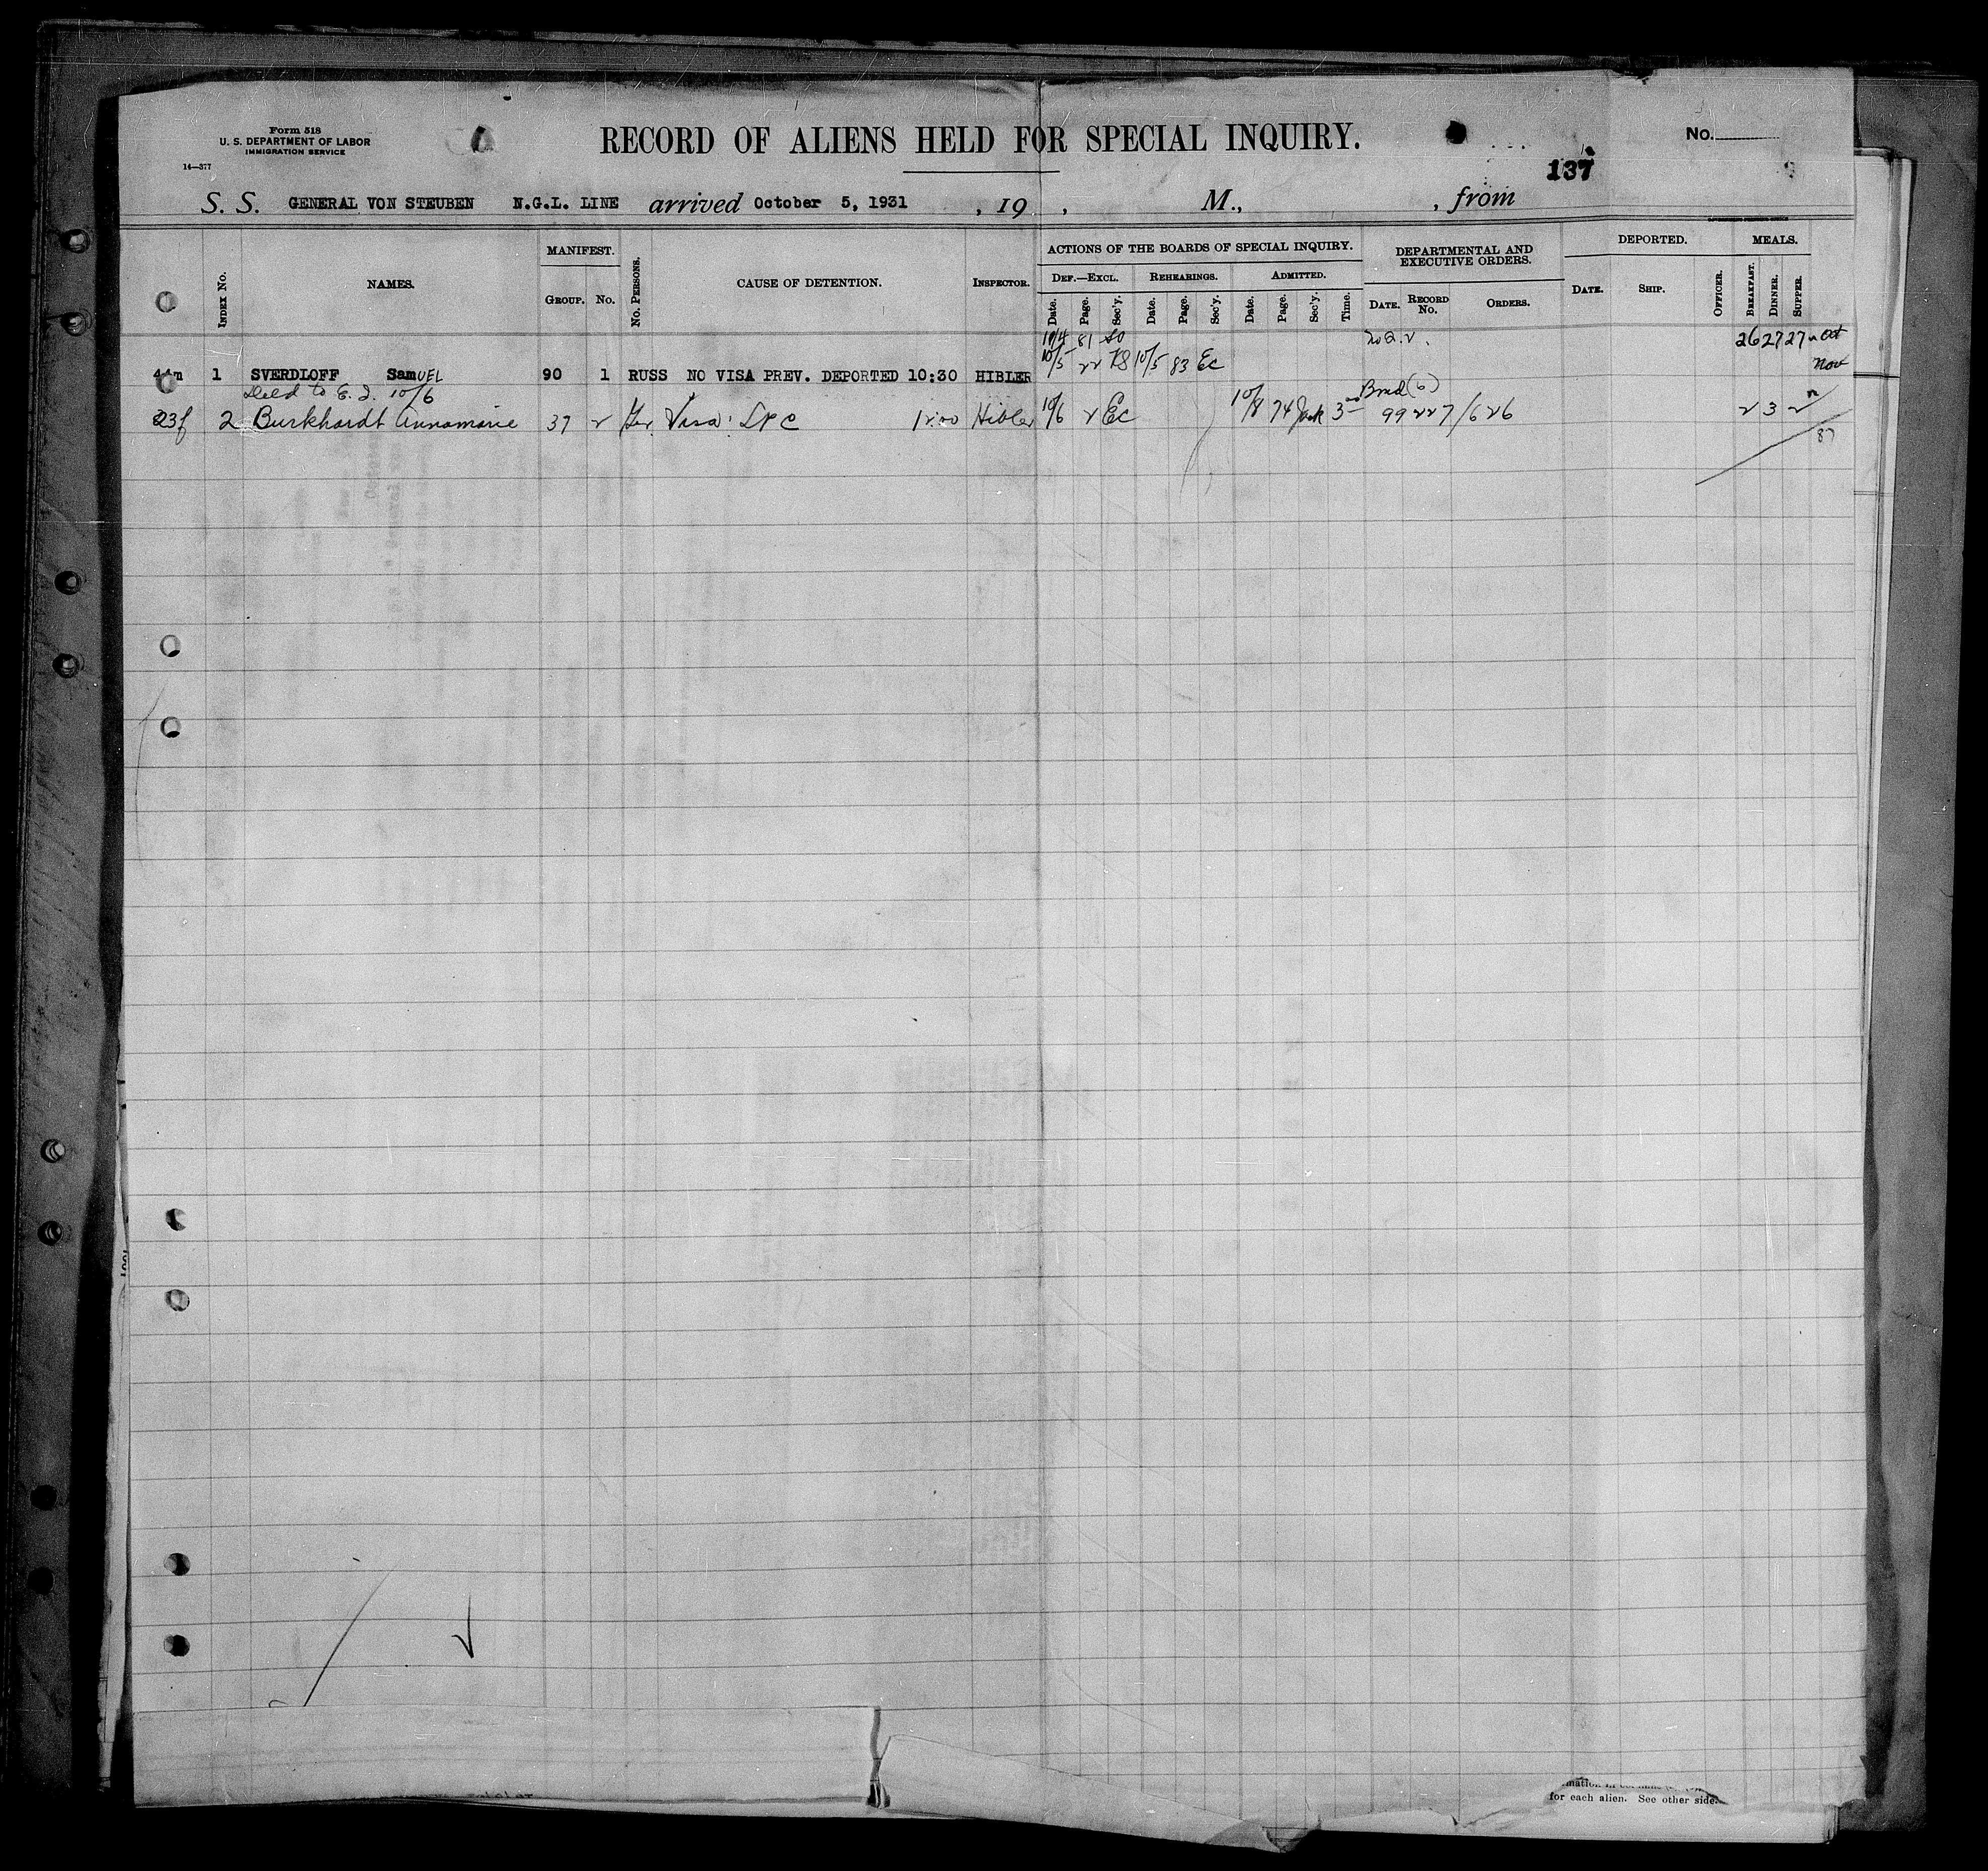 Form 518
U. S. DEPARTMENT OF LABOR
IMMIGRATION SERVICE
14—377
RECORD OF ALIENS HELD FOR SPECIAL INQUIRY.
No.
137
S. S. GENERAL VON STEUBEN N.G.L. LINE arrived October 5, 1931 , 19 , M., , from
INDEX No. NAMES. MANIFEST. GROUP. No. No. PERSONS. CAUSE OF DETENTION. INSPECTOR.
ACTIONS OF THE BOARDS OF SPECIAL INQUIRY.
DEF.—EXCL. Date. Page. Sec'y. REHEARINGS. Date. Page. Sec'y. ADMITTED. Date. Page. Sec'y. Time.
DEPARTMENTAL AND EXECUTIVE ORDERS. DATE. RECORD No. ORDERS.
DEPORTED. DATE. SHIP. OFFICER. MEALS. BREAKFAST. DINNER. SUPPER.
10/4 81 26 27 27
44m 1 SVERDLOFF SamUEL 90 1 RUSS NO VISA PREV. DEPORTED 10:30 HIBLER 10/5 22 10/5 83 Ec Nov
Held to E. I. 10/6
23f 2 Burkhardt Annamarie 37 2 Ger Visa LPC 12:00 Hibler 10/6 2 Ec 10/8 74 3 99227/626 2 3 2
87
for each alien. See other side.